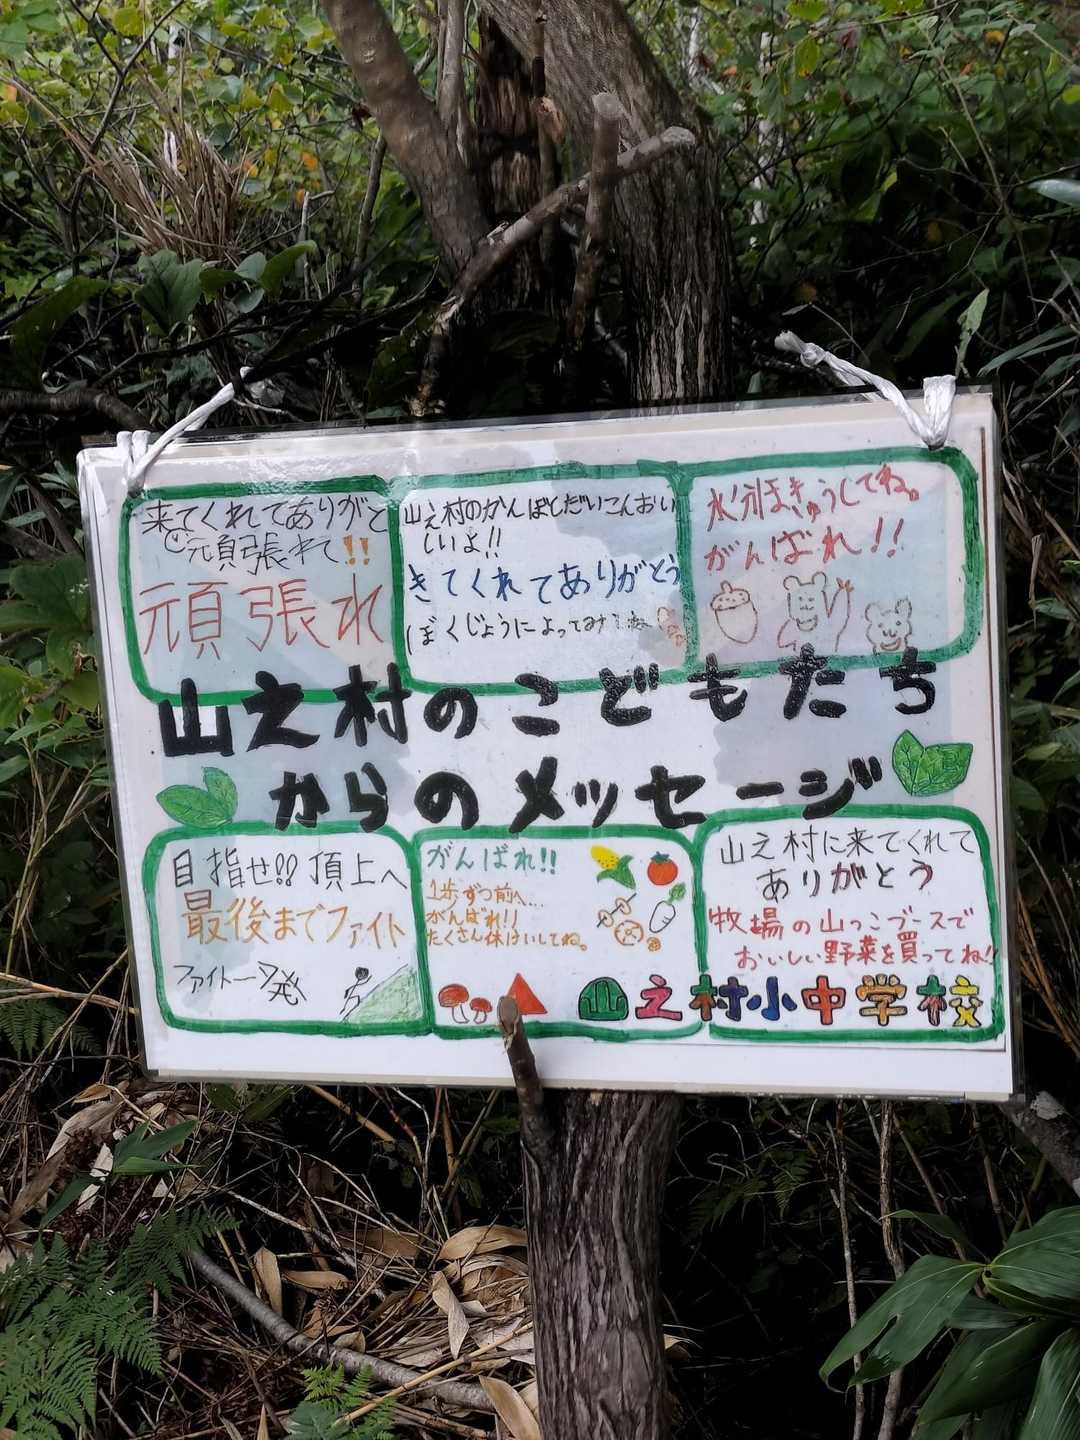 来てくれてありがと
う元頁張れて!!
頑張れ
山之村のかんぼしだいこんおい
しいよ!!
きてくれてありがとう
ぼくじょうによってみてね
水分ほきゅうしてね。
がんばれ!!
山之村のこどもたち
からのメッセージ
目指せ!!頂上へ
最後までファイト
ファイトー一発
がんばれ!!
1歩ずつ前へ...
がんばれ!!
たくさん休けいしてね。
山之村に来てくれて
ありがとう
牧場の山っこブースで
おいしい野菜を買ってね!!
山之村小中学校